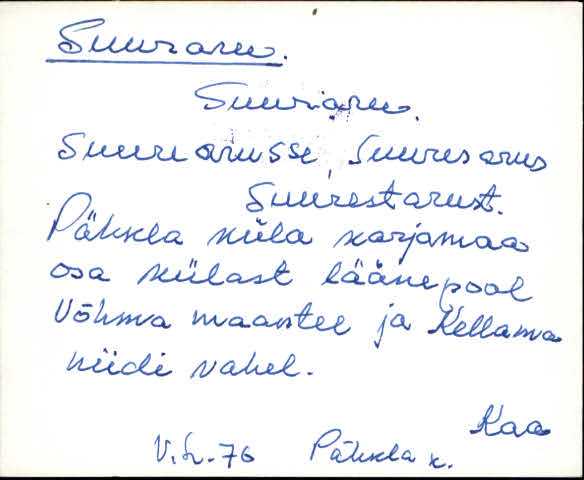 Suuraru.
Suuriaru.
Suuruarusse, Suuresarus
Suurestarust.
Pähkla küla karjamaa
osa külast läänepool
Võhma maantee ja Kellama
niidi vahel.
Kaa
Pähkla k.